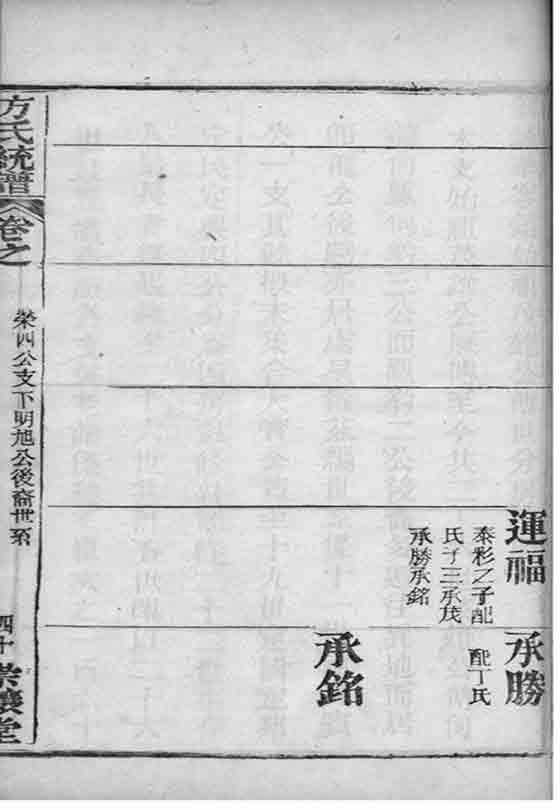 運福
泰彩之子配
氏子三承茂
承勝承銘
承勝
配丁氏
承銘
方氏統譜
卷之
榮四公支下明旭公後裔世系
四十
堂